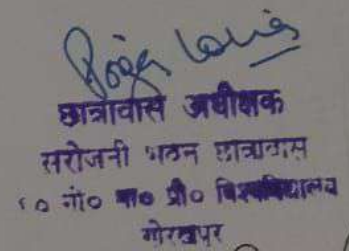 छात्रावास अधीक्षक
सरोजनी भवन छात्रावास
म० मो० मा० प्रौ० विश्वविद्यालय
गोरखपुर